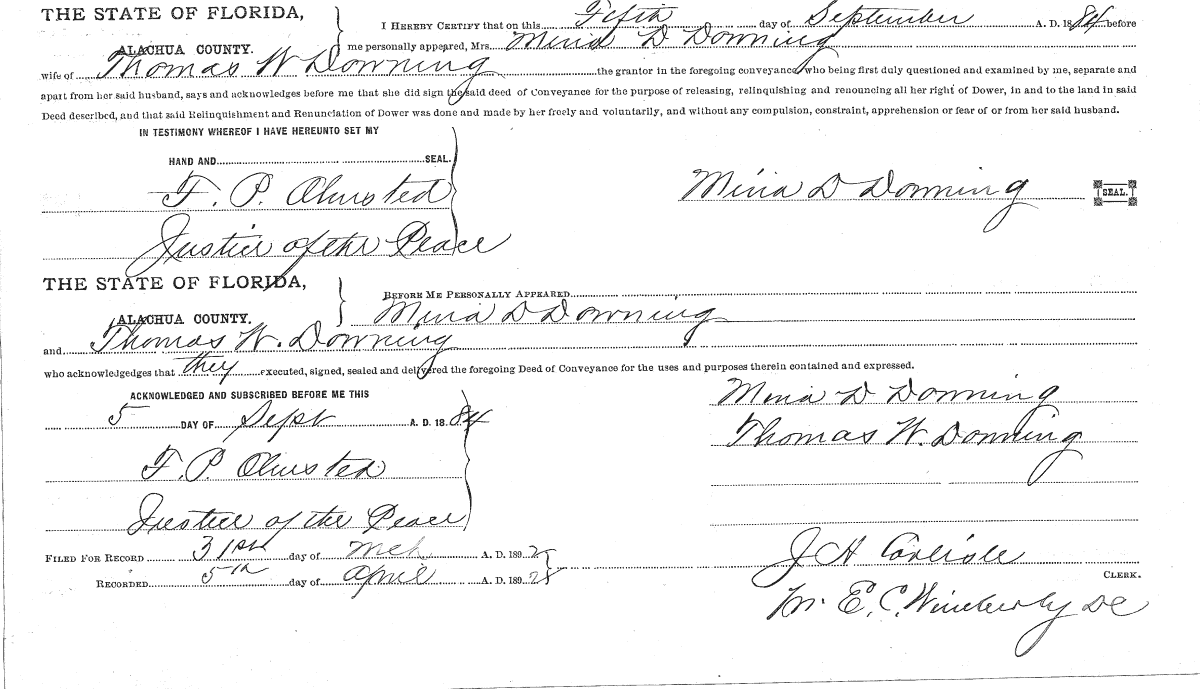 THE STATE OF FLORIDA,
ALACHUA COUNTY.
I HEREBY CERTIFY that on this Fifth day of September A. D. 1884 before
me personally appeared, Mrs. Mina D Downing
wife of Thomas W Downing the grantor in the foregoing conveyance, who being first duly questioned and examined by me, separate and
apart from her said husband, says and acknowledges before me that she did sign the said deed of Conveyance for the purpose of releasing, relinquishing and renouncing all her right of Dower, in and to the land in said
Deed described, and that said Relinquishment and Renunciation of Dower was done and made by her freely and voluntarily, and without any compulsion, constraint, apprehension or fear of or from her said husband.
IN TESTIMONY WHEREOF I HAVE HEREUNTO SET MY
HAND AND SEAL.
F. P. Olmsted
Mina D Downing SEAL.
Justice of the Peace
THE STATE OF FLORIDA,
ALACHUA COUNTY.
BEFORE ME PERSONALLY APPEARED
Mina D Downing
and Thomas W. Downing
who acknowledgedges that they executed, signed, sealed and delivered the foregoing Deed of Conveyance for the uses and purposes therein contained and expressed.
ACKNOWLEDGED AND SUBSCRIBED BEFORE ME THIS
Mina D Downing
5 DAY OF Sept A. D. 18 84
Thomas W. Downing
F. P. Olmsted
Justice of the Peace
FILED FOR RECORD 31st day of Mch A. D. 189
J H Carlisle
CLERK.
RECORDED 5th day of April A. D. 189
E. C. Wimberly DC